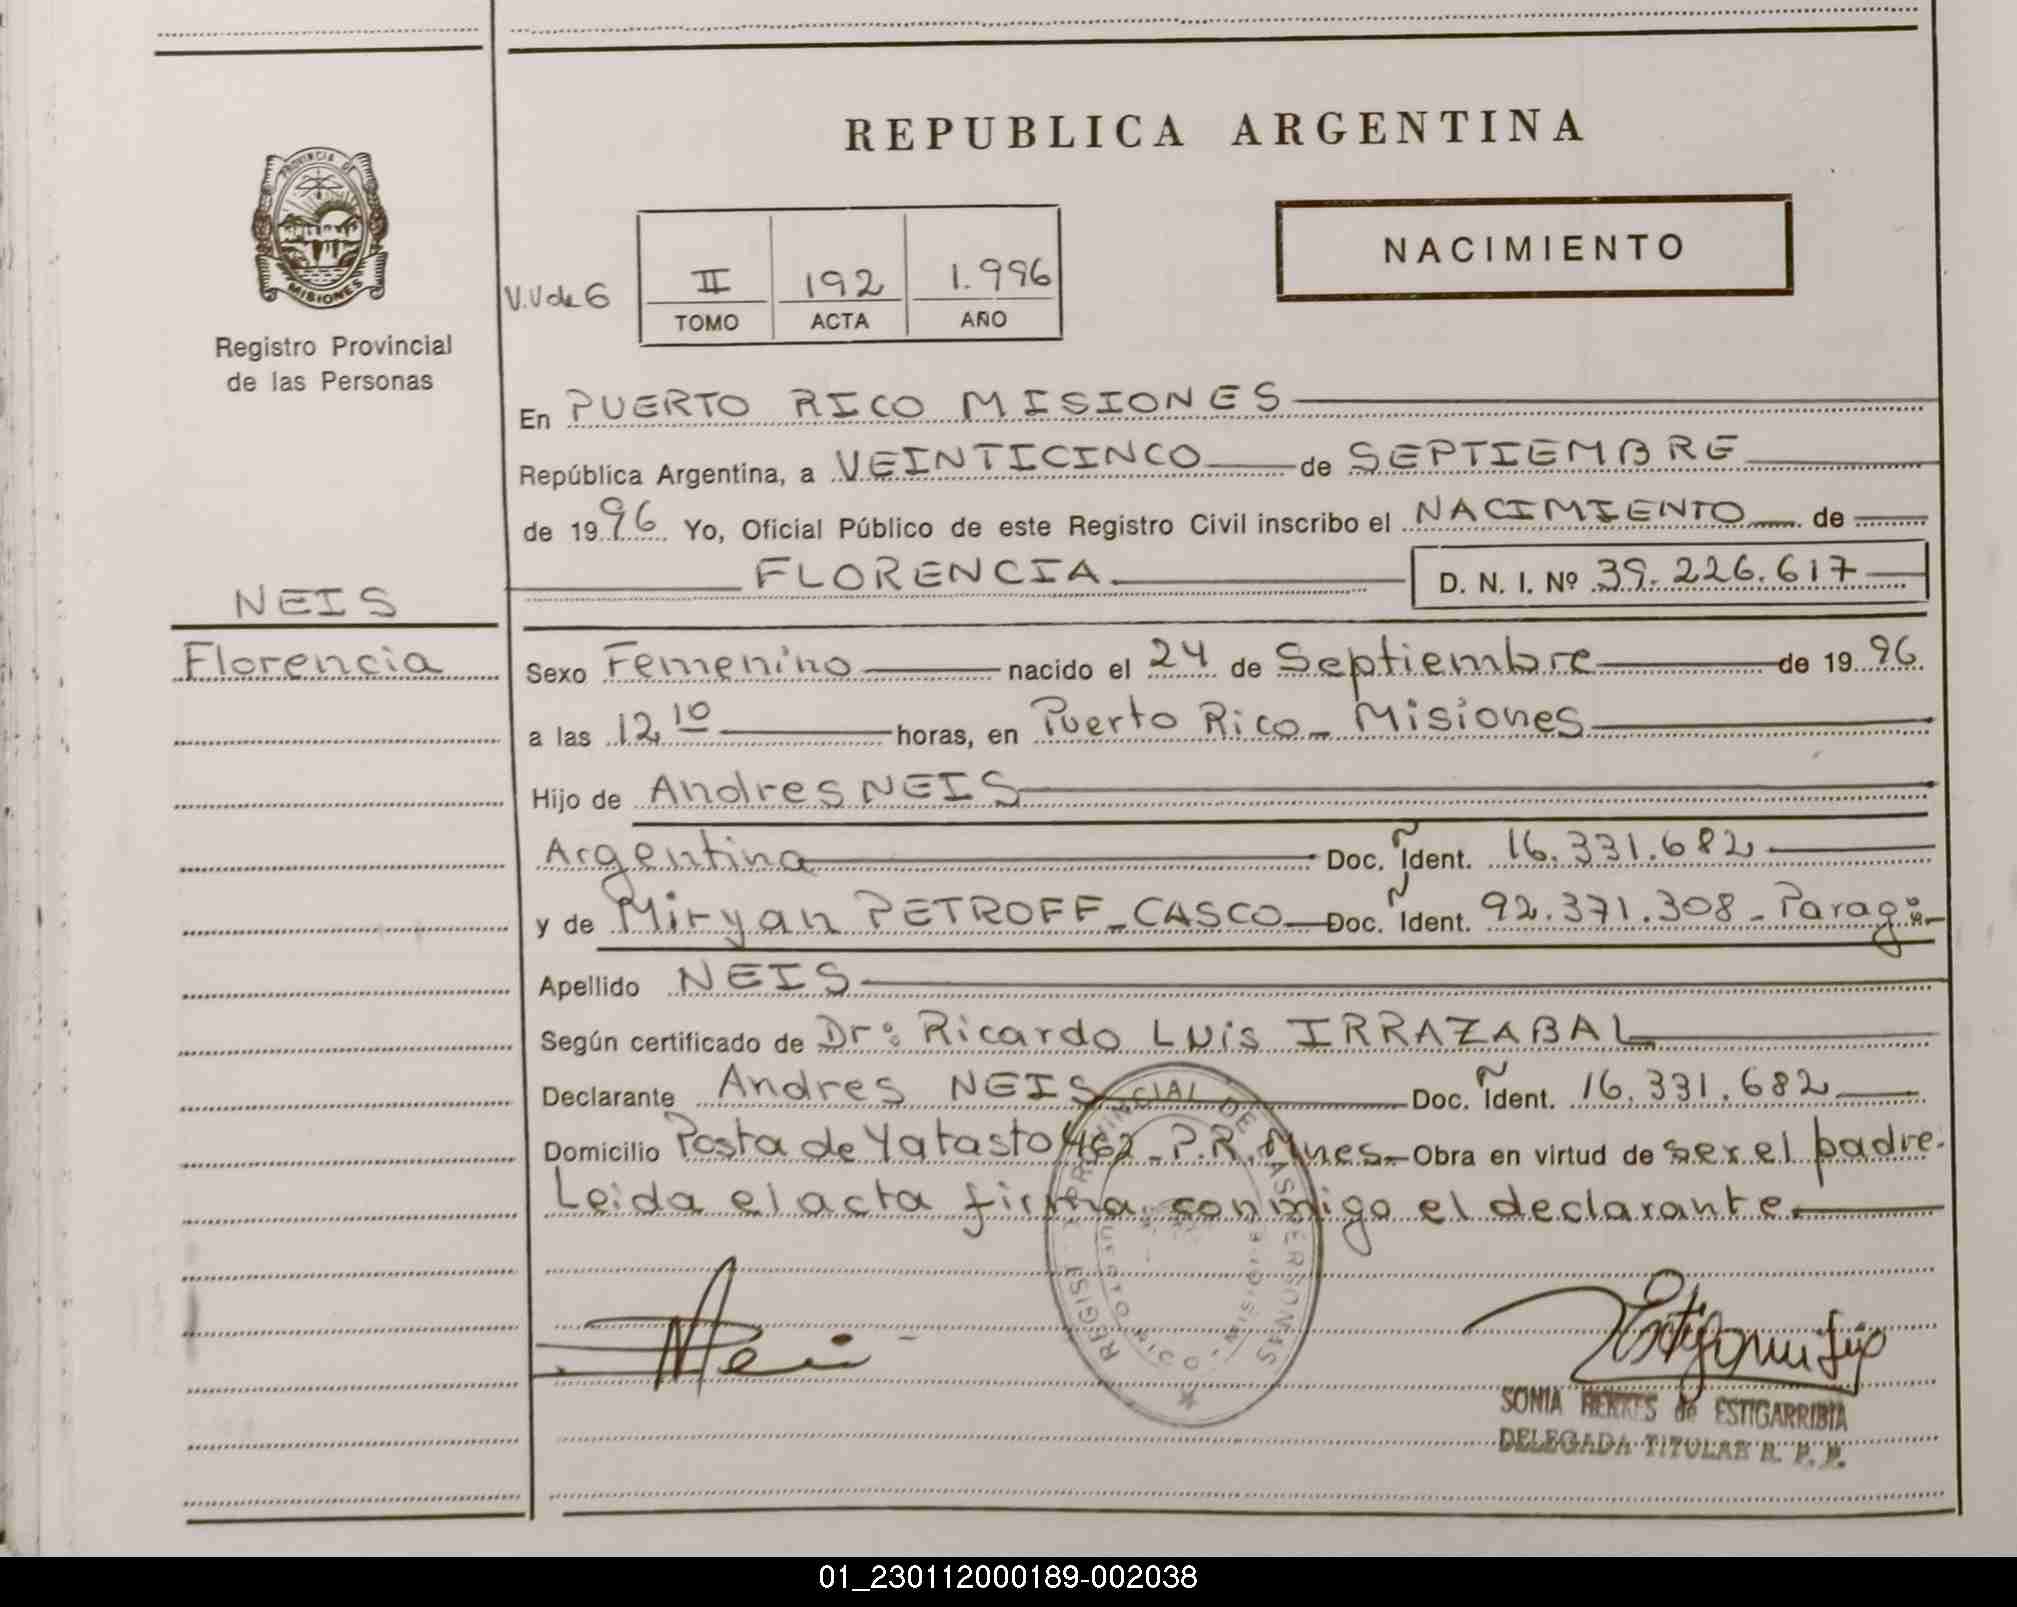 REPUBLICA ARGENTINA
PROVINCIA DE
MISIONES
Registro Provincial
de las Personas
NACIMIENTO
V.V de 6
II 192 1.996
TOMO ACTA AÑO
En PUERTO RICO MISIONES
República Argentina, a VEINTICINCO de SEPTIEMBRE
de 1996 Yo, Oficial Público de este Registro Civil inscribo el NACIMIENTO de
FLORENCIA D. N. I. Nº 39.226.617
NEIS
Florencia
Sexo Femenino nacido el 24 de Septiembre de 1996
a las 12,10 horas, en Puerto Rico - Misiones
Hijo de Andres NEIS
Argentina Doc. Ident. 16.331.682
y de Miryan PETROFF - CASCO Doc. Ident. 92.371.308 - Parag
Apellido NEIS
Según certificado de Dr: Ricardo Luis IRRAZABAL
Declarante Andres NEIS Doc. Ident. 16.331.682
Domicilio Posta de Yatasto 462 - P.R. Mnes. Obra en virtud de ser el padre.
Leida el acta firma conmigo el declarante.
SONIA HENKES de ESTIGARRIBIA
DELEGADA TITULAR R. P. P.
01_230112000189-002038